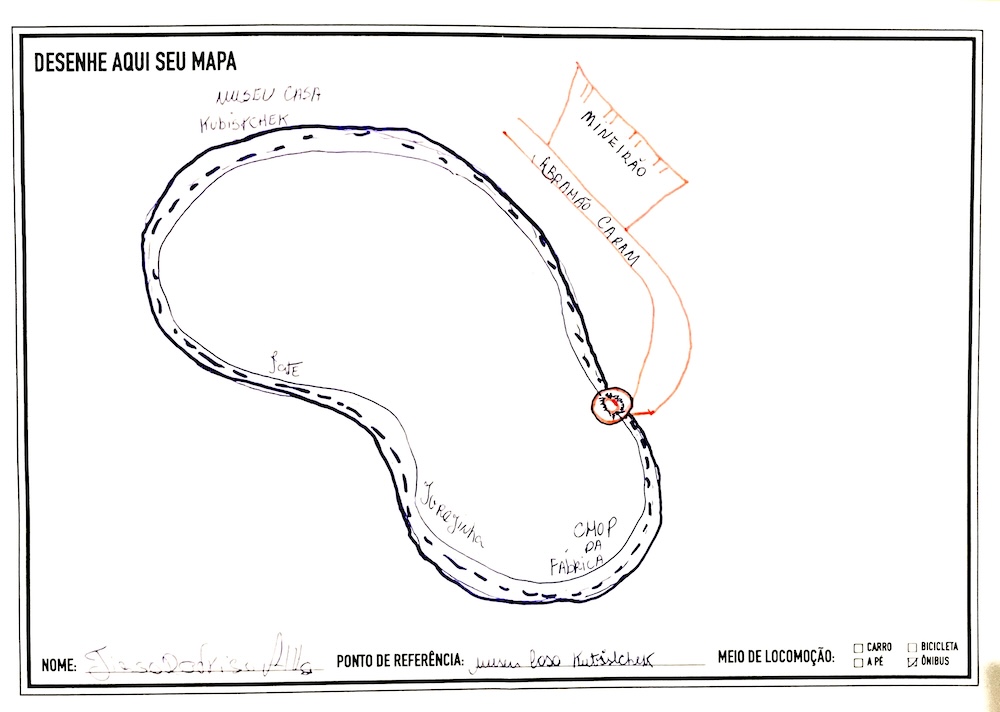 DESENHE AQUI SEU MAPA
MUSEU CASA
KUBISTCHEK
MINEIRÃO
ABRAHÃO CARAM
IGREJINHA
CHOP
DA
FÁBRICA
NOME:
PONTO DE REFERÊNCIA: Museu Casa Kubistchek
MEIO DE LOCOMOÇÃO:
CARRO
BICICLETA
A PÉ
ÔNIBUS